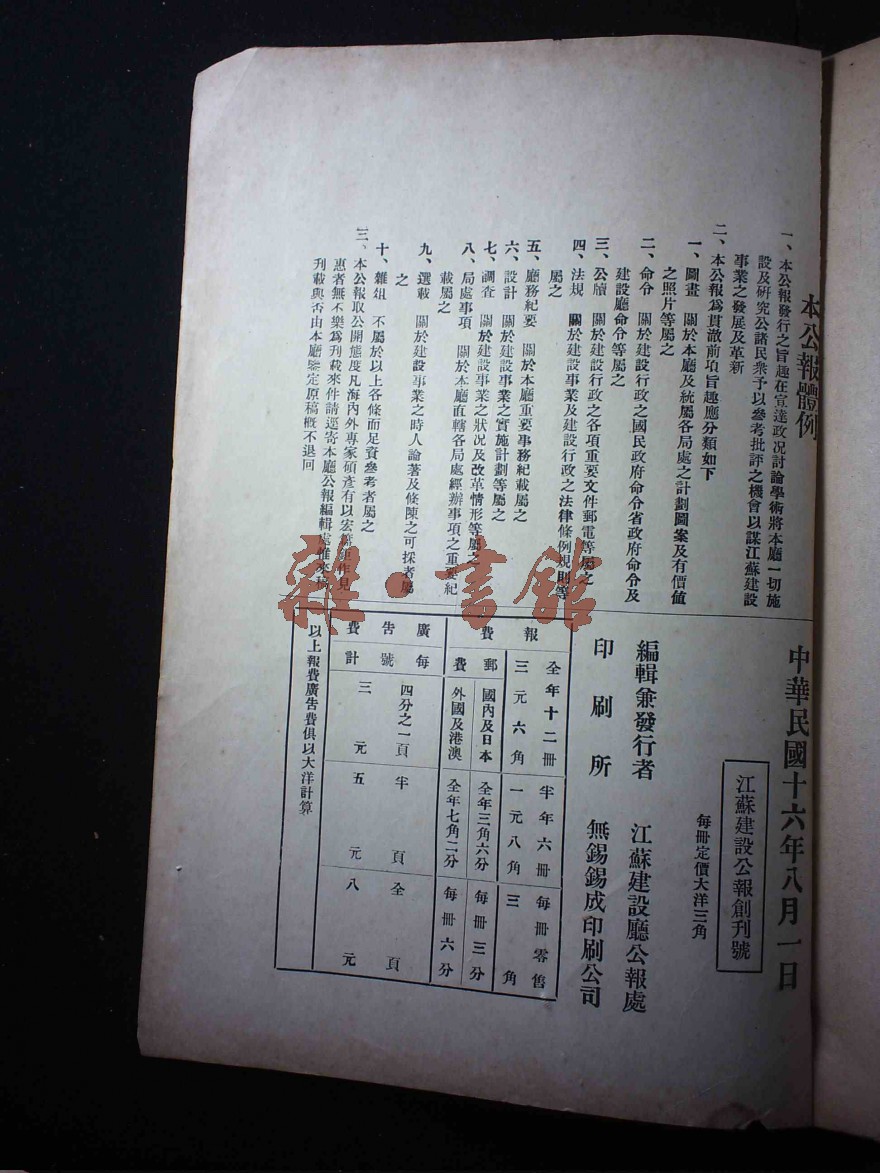 本公報體例
一、本公報發行之旨趣在宣達政况討論學術將本廳一切施
設及硏究公諸民衆予以參考批評之機會以謀江蘇建設
事業之發展及革新
二、本公報爲貫澈前項旨趣應分類如下
一、圖畫　關於本廳及統屬各局處之計劃圖案及有價値
之照片等屬之
二、命令　關於建設行政之國民政府命令省政府命令及
建設廳命令等屬之
三、公牘　關於建設行政之各項重要文件郵電等屬之
四、法規　關於建設事業及建設行政之法律條例規則等
屬之
五、廳務紀要　關於本廳重要事務紀載屬之
六、設計　關於建設事業之實施計劃等屬之
七、調查　關於建設事業之狀况及改革情形等屬之
八、局處事項　關於本廳直轄各局處經辦事項之重要紀
載屬之
九、選載　關於建設事業之時人論著及條陳之可採者屬
之
十、雜俎　不屬於以上各條而足資參考者屬之
三、本公報取公開態度凡海內外專家碩彥有以宏著
惠者無不樂爲刊載來件請逕寄本廳公報編輯處惟來稿
刊載與否由本廳鑒定原稿槪不退回
中華民國十六年八月一日
江蘇建設公報創刊號
每冊定價大洋三角
編輯兼發行者　江蘇建設廳公報處
印刷所　無錫錫成印刷公司
報費
全年十二冊　半年六冊　每冊零售
三元六角　一元八角　三角
郵費
國內及日本　全年三角六分　每冊三分
外國及港澳　全年七角二分　每冊六分
廣告費
每號計
四分之一頁　半頁　全頁
三元　五元　八元
以上報費廣告費俱以大洋計算
雜·書館